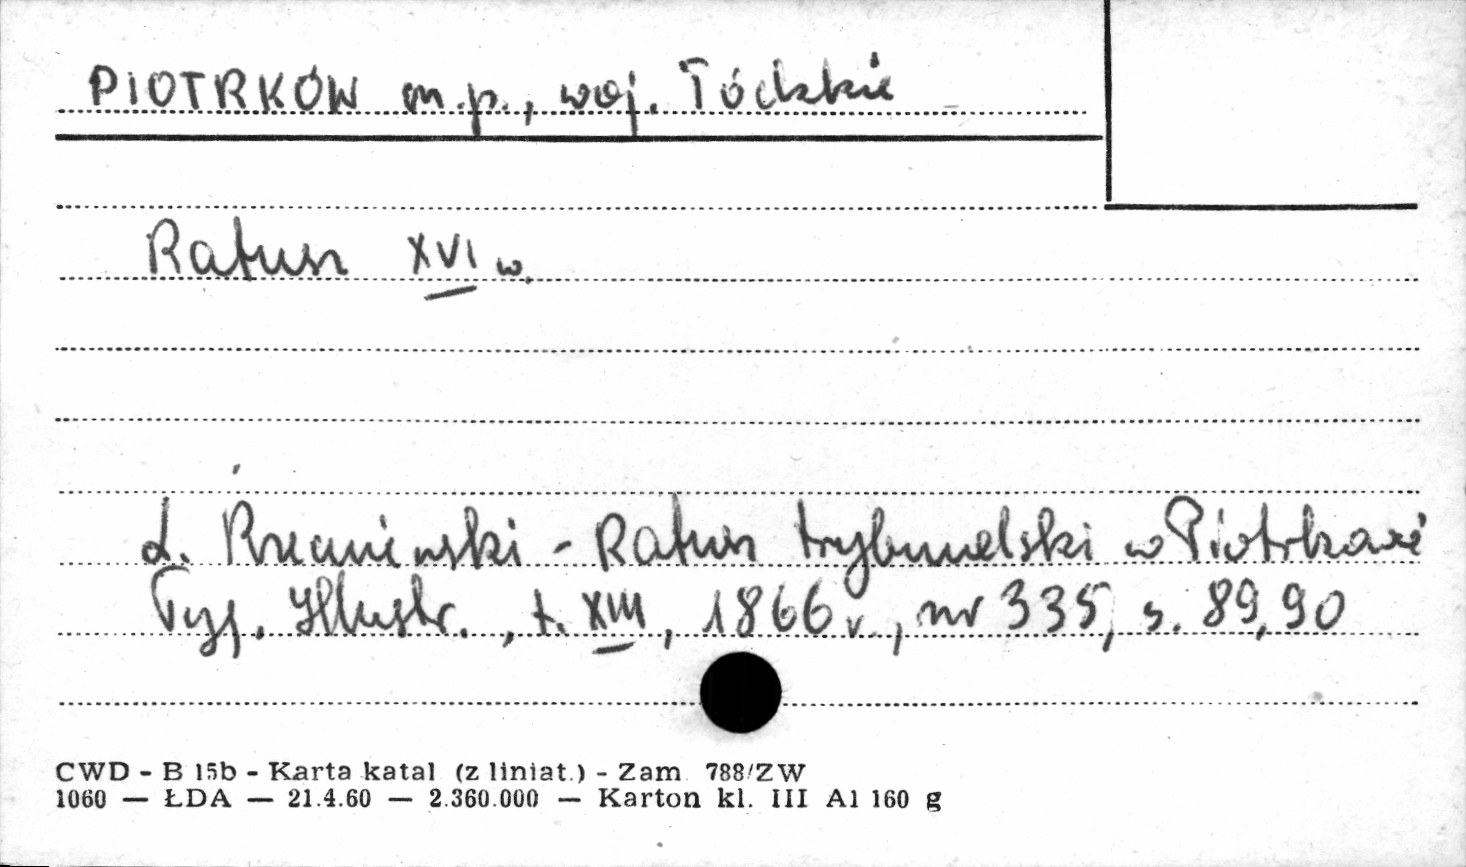 PIOTRKÓW m.p., woj. Łódzkie
Ratusz XVI w.
L. Rzeczniowski - Ratusz trybunalski w Piotrkowie
Tyg. Illustr., t. XIII, 1866 r., nr 335, s. 89, 90
CWD - B 15b - Karta katal (z liniat.) - Zam 788/ZW
1060 — ŁDA — 21.4.60 — 2.360.000 — Karton kl. III A1 160 g